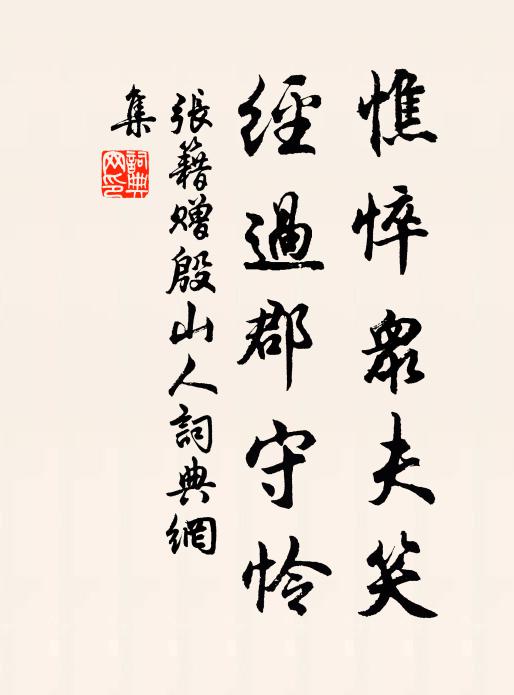 憔悴眾夫笑
經過郡守憐
張籍贈殷山人詞典網
集
詞典
网印